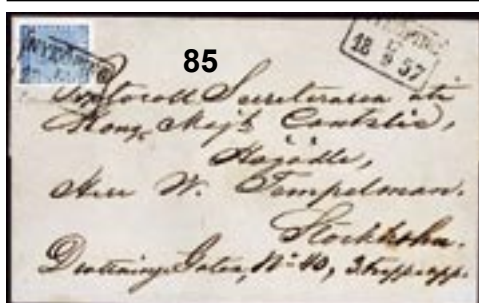 NYKÖPING
85
NYKÖPING
12 9 57
Protocoll Secreteraren uti
Kongl Maj:ts Cantslie,
Högädle,
Herr W. Tempelman.
Stockholm.
Drottning Gatan, N:o 40, 3 trapp upp.